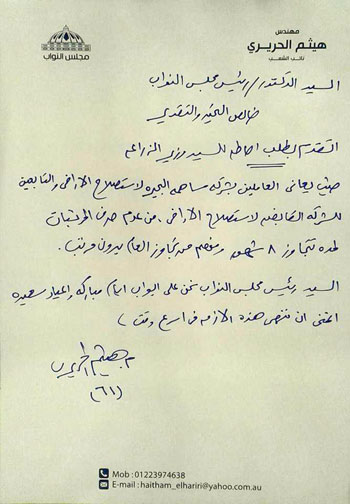 مهندس
هيثم الحريري
نائب الشعب
مجلس النواب
السيد الدكتور/ رئيس مجلس النواب
خالص التحية والتقدير
اتقدم بطلب احاطة للسيد وزير الزراعة
حيث يعانى العاملين بشركة مساهمة البحيرة لاستصلاح الاراضى والتابعين
للشركة القابضة لاستصلاح الاراضى. من عدم صرف المرتبات
لمدة تتجاوز ٨ شهور وبعضهم تجاوز العام بدون مرتب.
السيد رئيس مجلس النواب نحن على ابواب ايام مباركة واعياد سعيدة
اتمنى ان تنتهى هذه الازمة فى اسرع وقت
م. هيثم الحريرى
(٦١)
Mob : 01223974638
E-mail : haitham_elhariri@yahoo.com.au